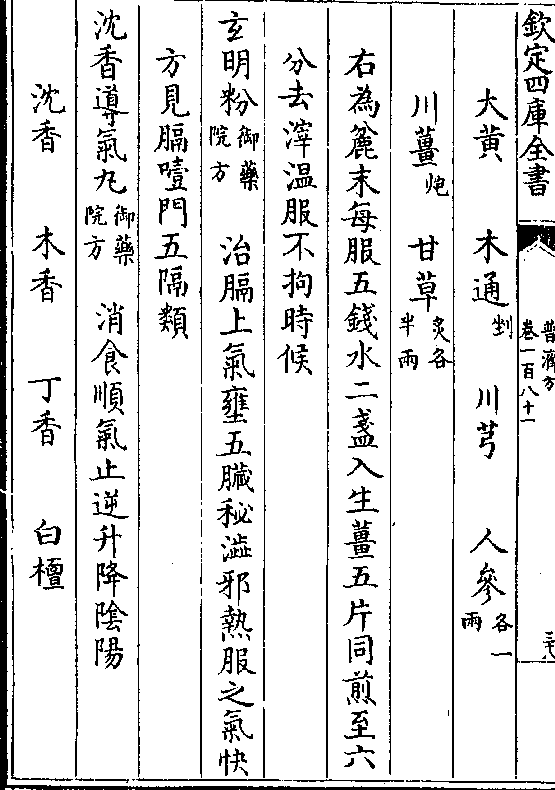 欽定四庫全書
普濟方
卷一百八十一
大黃 木通剉 川芎 人參各一兩
川薑炮 甘草炙各半兩
右為麄末每服五錢水二盞入生薑五片同煎至六
分去滓温服不拘時候
玄明粉御藥院方 治膈上氣壅五臟秘澁邪熱服之氣快
方見膈噎門五隔類
沈香導氣丸御藥院方 消食順氣止逆升降陰陽
沈香 木香 丁香 白檀